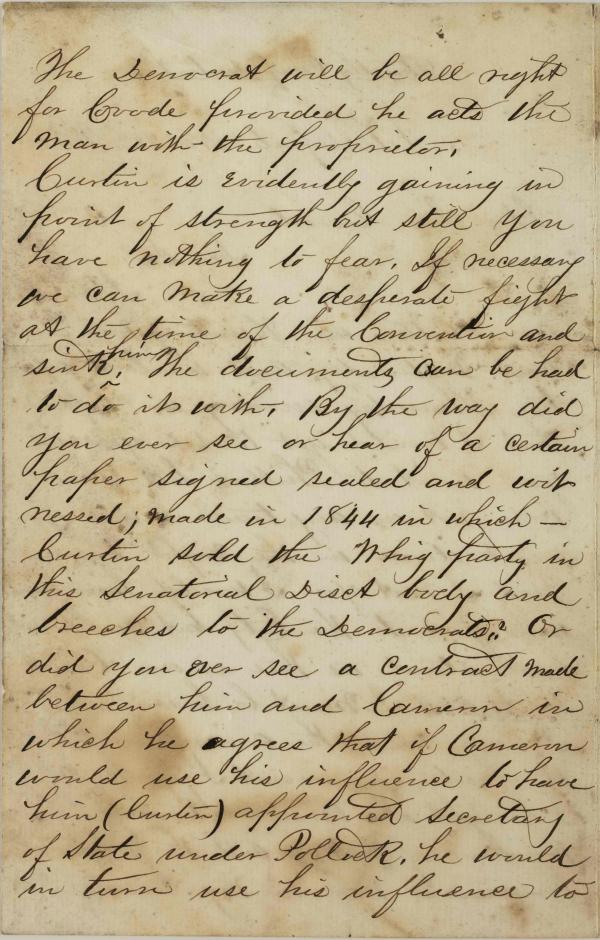 The Democrat will be all right
for Covode provided he acts the
man with the proprietor.
Curtin is evidently gaining in
point of strength but still you
have nothing to fear. If necessary
we can make a desperate fight
at the time of the Convention and
sink him. The documents can be had
to do it with. By the way did
you ever see or hear of a certain
paper signed sealed and wit
nessed; made in 1844 in which —
Curtin sold the Whig party in
this Senatorial Disct body and
breeches to the Democrats? Or
did you ever see a contract made
between him and Cameron in
which he agrees that if Cameron
would use his influence to have
him (Curtin) appointed Secretary
of State under Pollock, he would
in turn use his influence to